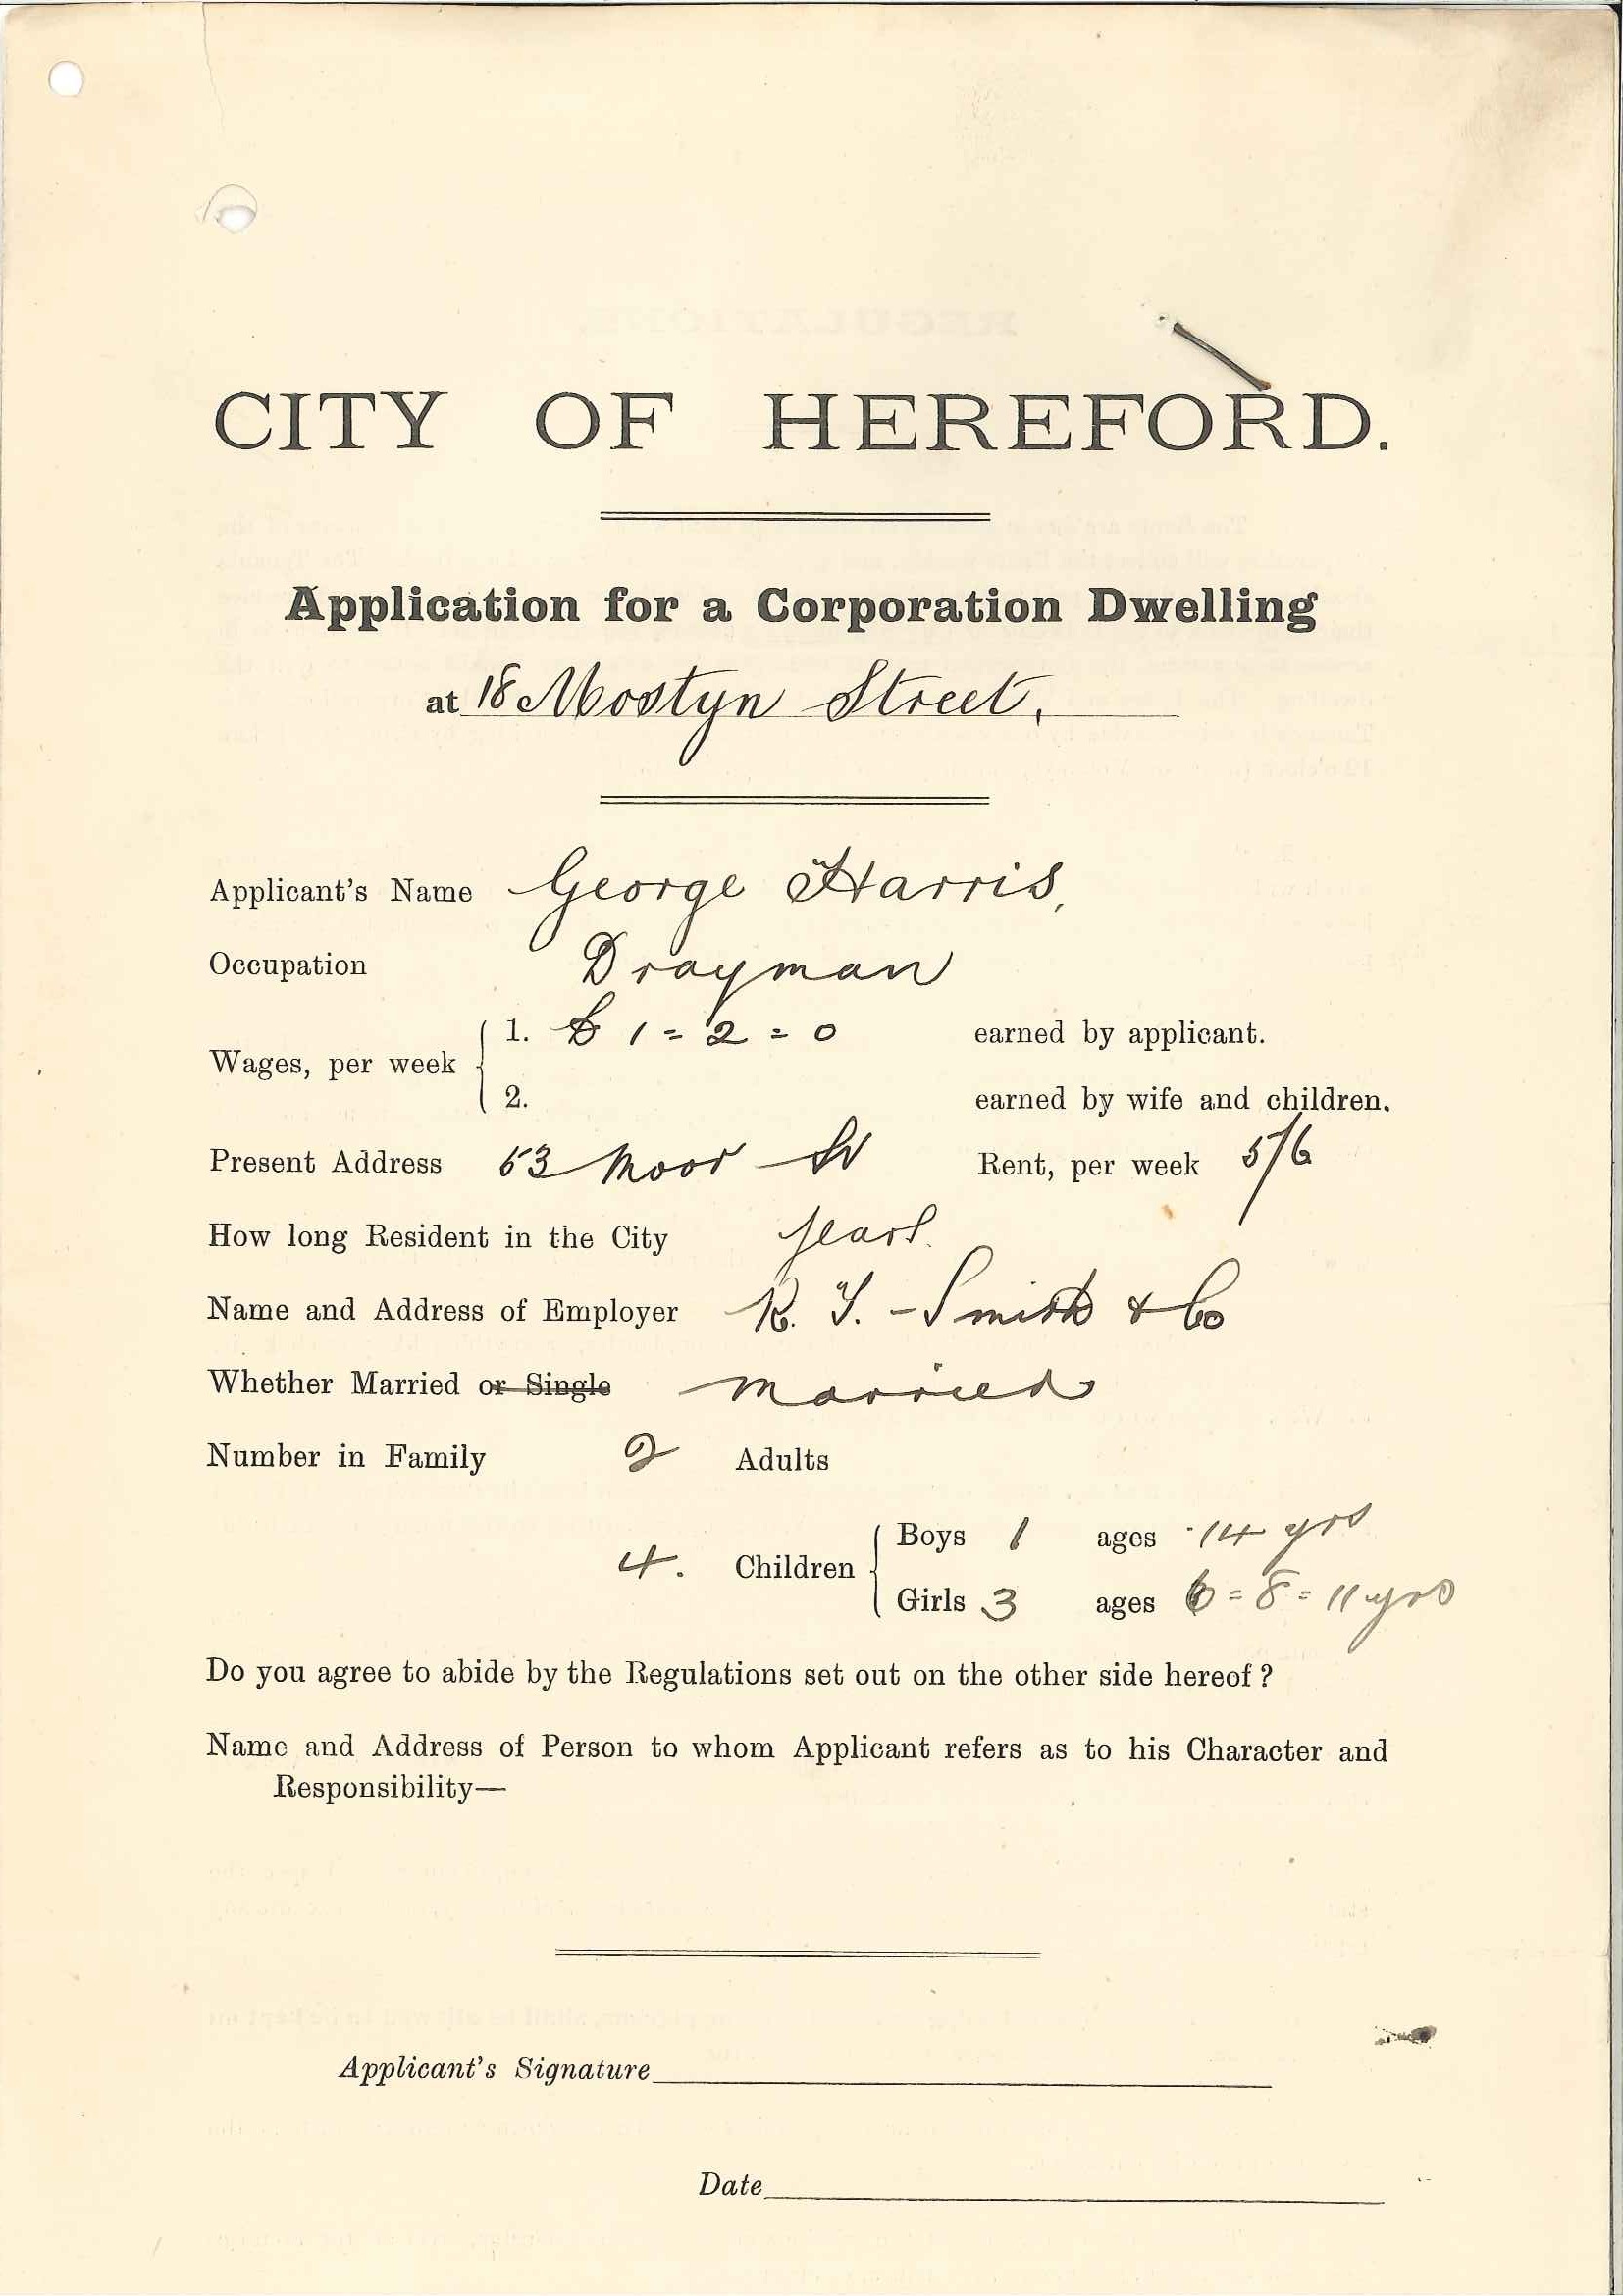 CITY OF HEREFORD.
Application for a Corporation Dwelling
at 18 Mostyn Street,
Applicant's Name George Harris,
Occupation Drayman
Wages, per week
1. £ 1 = 2 = 0 earned by applicant.
2. earned by wife and children.
Present Address 53 Moor St Rent, per week 5/6
How long Resident in the City years.
Name and Address of Employer R. T. Smith & Co
Whether Married or Single married
Number in Family 2 Adults
4. Children
Boys 1 ages 14 yrs
Girls 3 ages 6 = 8 = 11 yrs
Do you agree to abide by the Regulations set out on the other side hereof?
Name and Address of Person to whom Applicant refers as to his Character and
Responsibility—
Applicant's Signature
Date